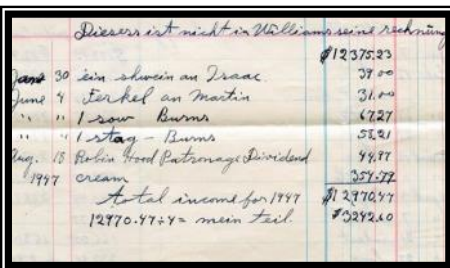 Diesers ist nicht in Williams seine rechnung
$12375.23
June 30 ein shwein an Isaac 39.00
June 4 Ferkel an Martin 31.00
" " 1 sow Burns 67.27
" " 1 stag - Burns 58.21
Aug. 18 Robin Hood Patronage Dividend 44.97
1947 cream 354.77
total income for 1947 $12970.47
12970.47÷4= mein teil. $3242.60